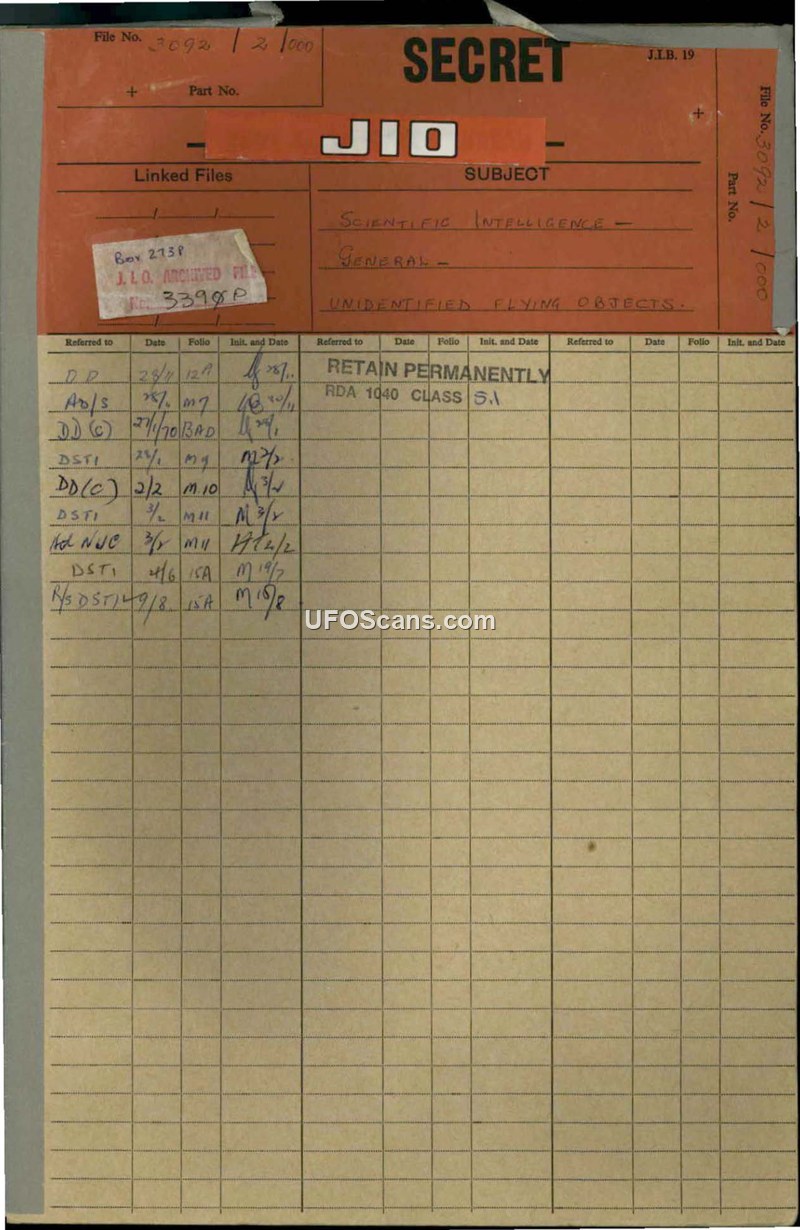 File No. 3092 / 2 / 000
SECRET
J.I.B. 19
+ Part No.
+
- JIO -
File No. 3092 / 2 / 000
Part No.
Linked Files
SUBJECT
SCIENTIFIC INTELLIGENCE -
GENERAL -
UNIDENTIFIED FLYING OBJECTS.
Box 273P
J.I.O. ARCHIVED FILE
No.
Referred to Date Folio Init. and Date Referred to Date Folio Init. and Date Referred to Date Folio Init. and Date
RETAIN PERMANENTLY
RDA 1040 CLASS 5.1
DD 28/11 12A
AD/S M7
DD(C) 27/1/70 BAD
DSTI 28/1 M9 M 2/2
DD(C) 2/2 M10 3/2
DSTI 3/2 M11 M 3/2
3/2 M11
DSTI 4/6 15A M
DSTI 9/8 15A M
UFOScans.com